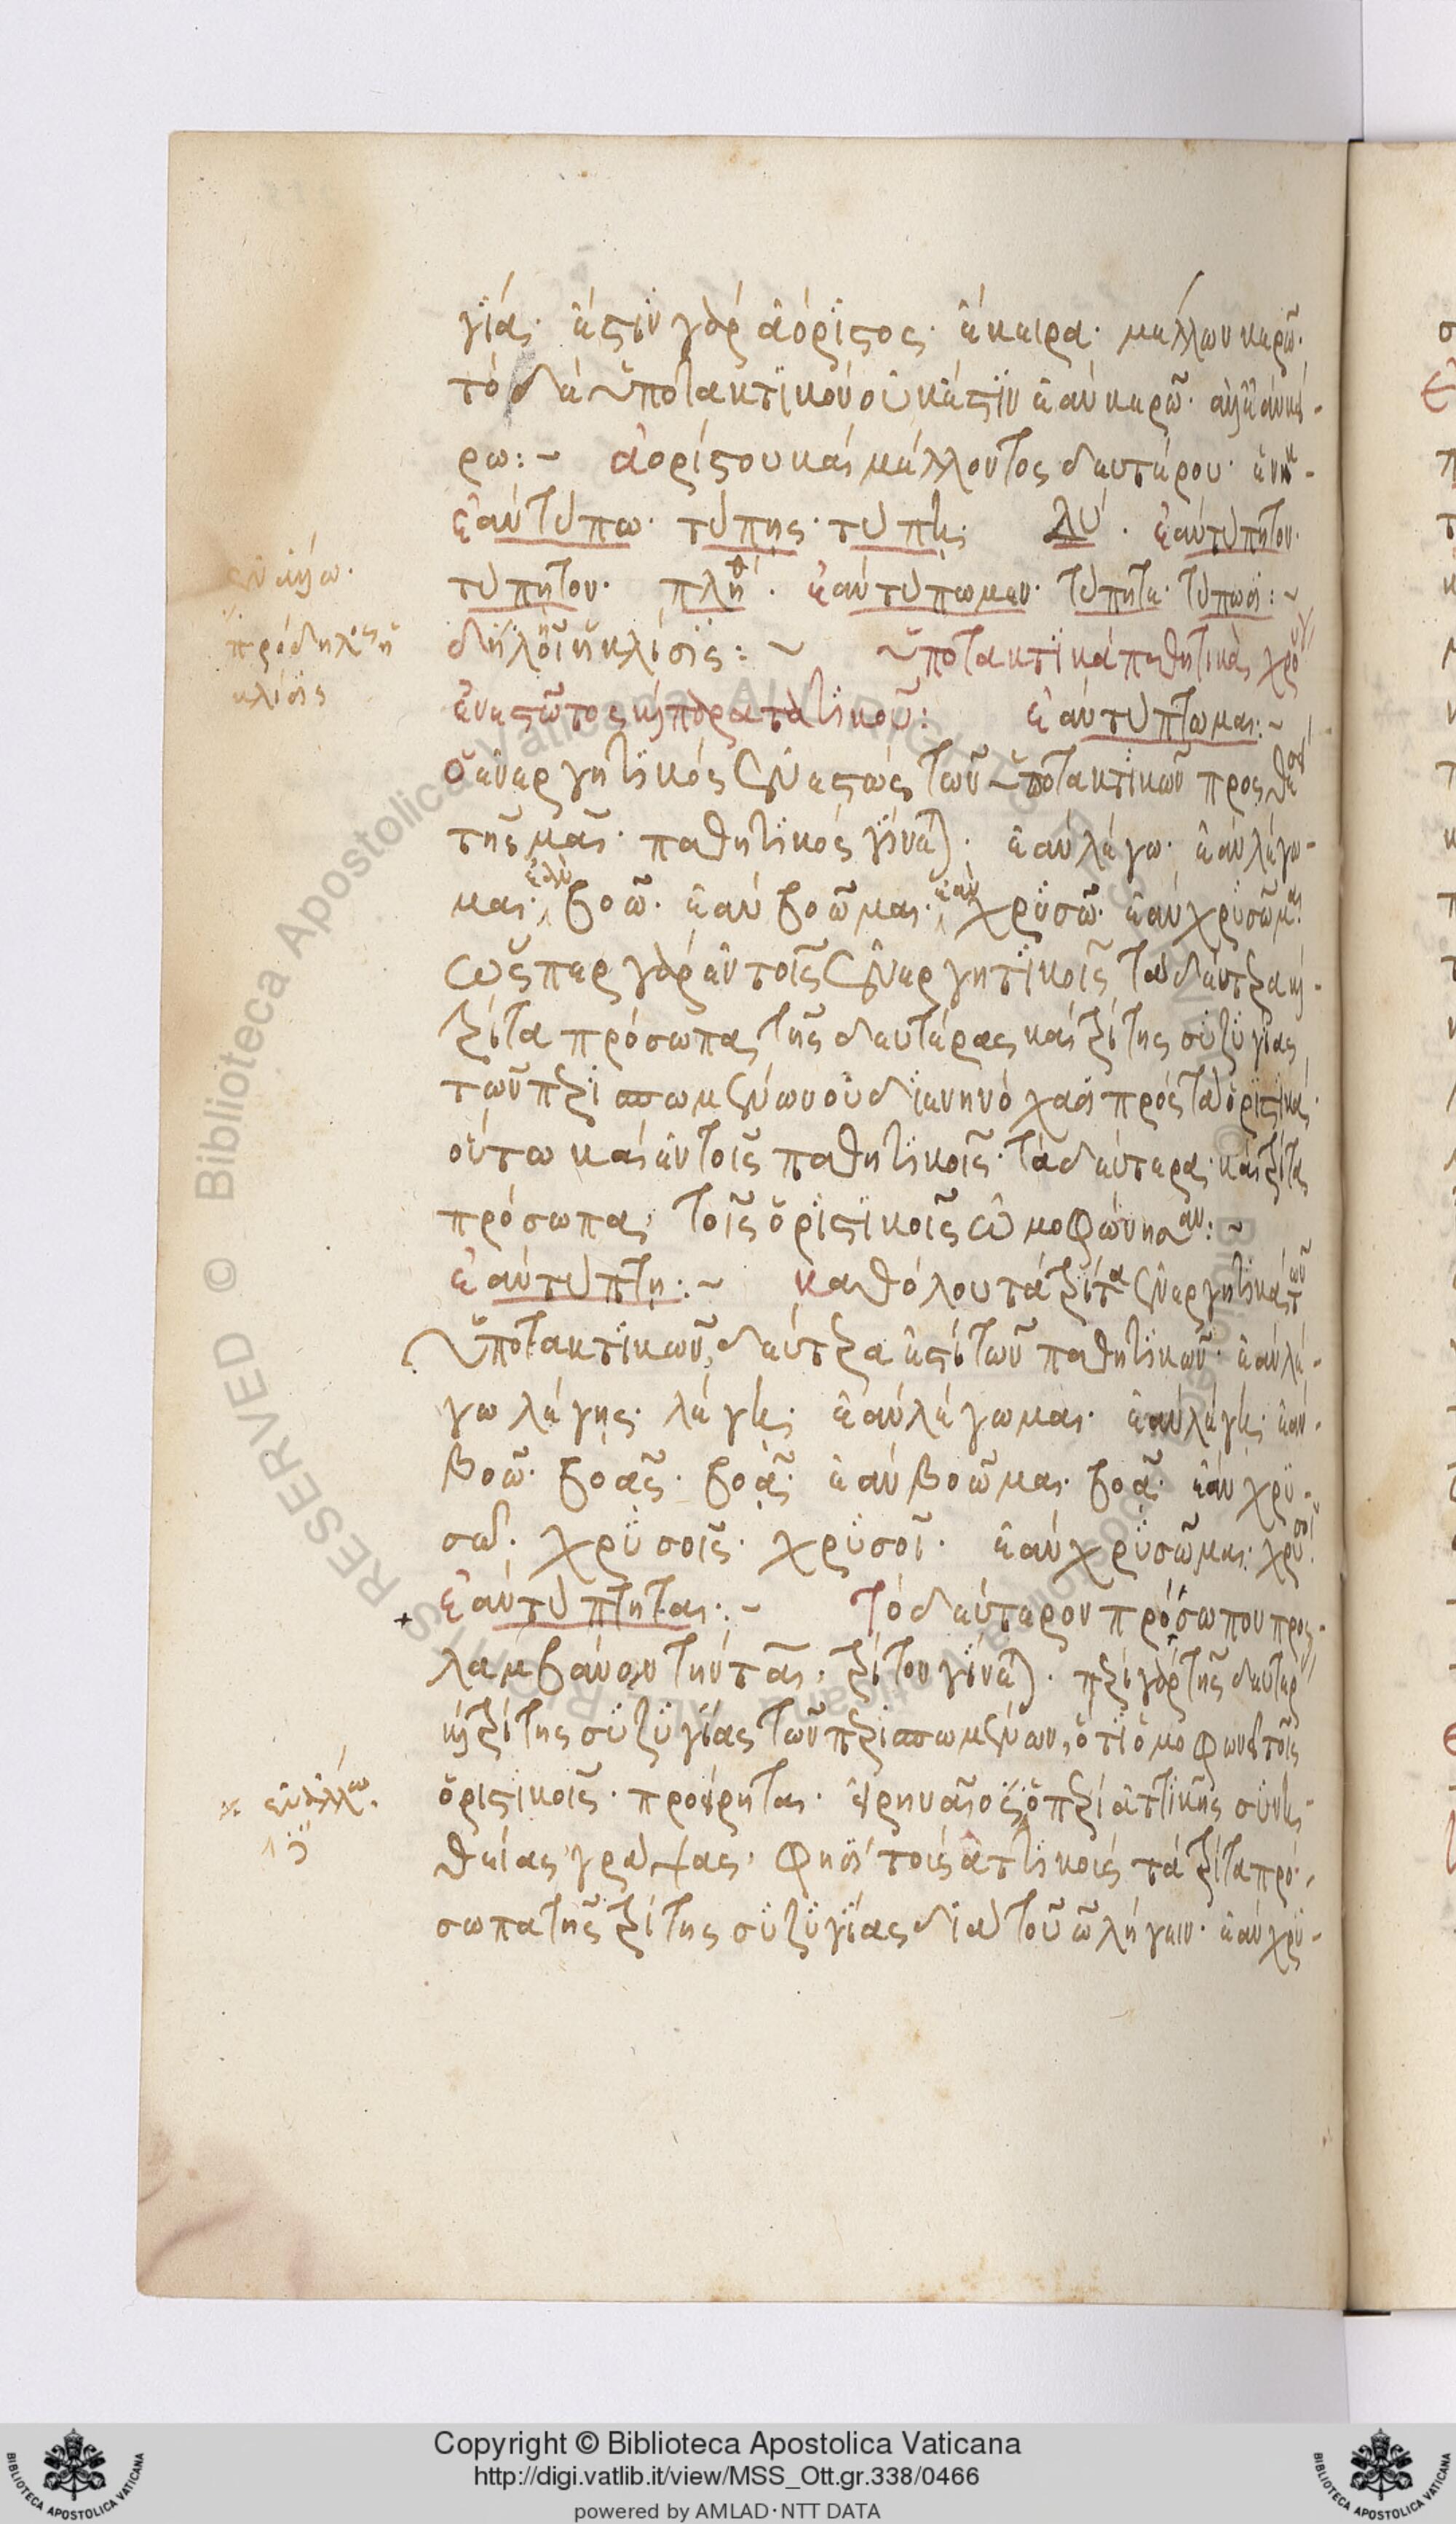 γίας· ἔστιν γὰρ ἀόριστος· ἔκειρα· μέλλων κερῶ·
τὸ δὲ ὑποτακτικὸν οὐκ ἔστιν ἐὰν κερῶ· ἀλλ' ἐὰν κεί-
ρω:~ ἀορίστου καὶ μέλλοντος δευτέρου· ἑνικ-
ἐὰν τύπω· τύπῃς· τύπῃ· δυ· ἐὰν τύπητον·
τύπητον· πληθ· ἐὰν τύπωμεν· τύπητε· τύπωσι:~
δήλοϊ ἡ κλίσις:~ ὑποτακτικὰ παθητικὰ χρο
ἐνεστῶτος καὶ παρατατικοῦ: ἐὰν τύπτωμαι:~
ὁ ἐνεργητικὸς ἐνεστὼς τῶν ὑποτακτικῶν προσθέσει
τῆς μαι· παθητικὸς γίνεται· ἐὰν λέγω· ἐὰν λέγω-
μαι· ἐὰν βοῶ· ἐὰν βοῶμαι· ἐὰν χρυσῶ· ἐὰν χρυσῶμαι
ὥσπερ γὰρ ἐν τοῖς ἐνεργητικοῖς τὰ δεύτερα καὶ
τρίτα πρόσωπα τῆς δευτέρας καὶ τρίτης συζυγίας
τῶν περισπωμένων οὐ διενηνόχασι πρὸς τὰ ὁριστικὰ·
οὕτω καὶ ἐν τοῖς παθητικοῖς· τὰ δεύτερα· καὶ τρίτα
πρόσωπα, τοῖς ὁριστικοῖς ὡμοφώνησαν:~
ἐὰν τύπτῃ:~ καθόλου τὰ τρίτα ἐνεργητικὰ τῶν
ὑποτακτικῶν, δεύτερα ἐστὶ τῶν παθητικῶν· ἐὰν λέ-
γω λέγῃς· λέγῃ· ἐὰν λέγωμαι· ἐὰν λέγῃ· ἐὰν-
βοῶ· βοᾷς· βοᾷ· ἐὰν βοῶμαι· βοᾷ· ἐὰν χρυ-
σῶ· χρυσοῖς· χρυσοῖ· ἐὰν χρυσῶμαι· χρυσοῖ
ἐὰν τύπτηται:~ Τὸ δεύτερον πρόσωπον προσ-
λαμβάνον τὴν ται, τρίτον γίνεται· περὶ γὰρ τῆς δευτέρ
καὶ τρίτης συζυγίας τῶν περισπωμένων, ὅτι ὁμοφωνεῖ τοῖς
ὁριστικοῖς· προείρηται· εἰρηναῖος ὁ περὶ ἀττικῆς συνη-
θείας γράψας, φησὶ τοῖς ἀττικοῖς τὰ τρίτα πρό-
σωπα τῆς τρίτης συζυγίας διὰ τοῦ ω λήγειν· ἐὰν χρυ-
ἐν ἄλλω·
πρόδηλος ἡ
κλίσις
ἐν ἄλλω·
Copyright © Biblioteca Apostolica Vaticana
http://digi.vatlib.it/view/MSS_Ott.gr.338/0466
powered by AMLAD·NTT DATA